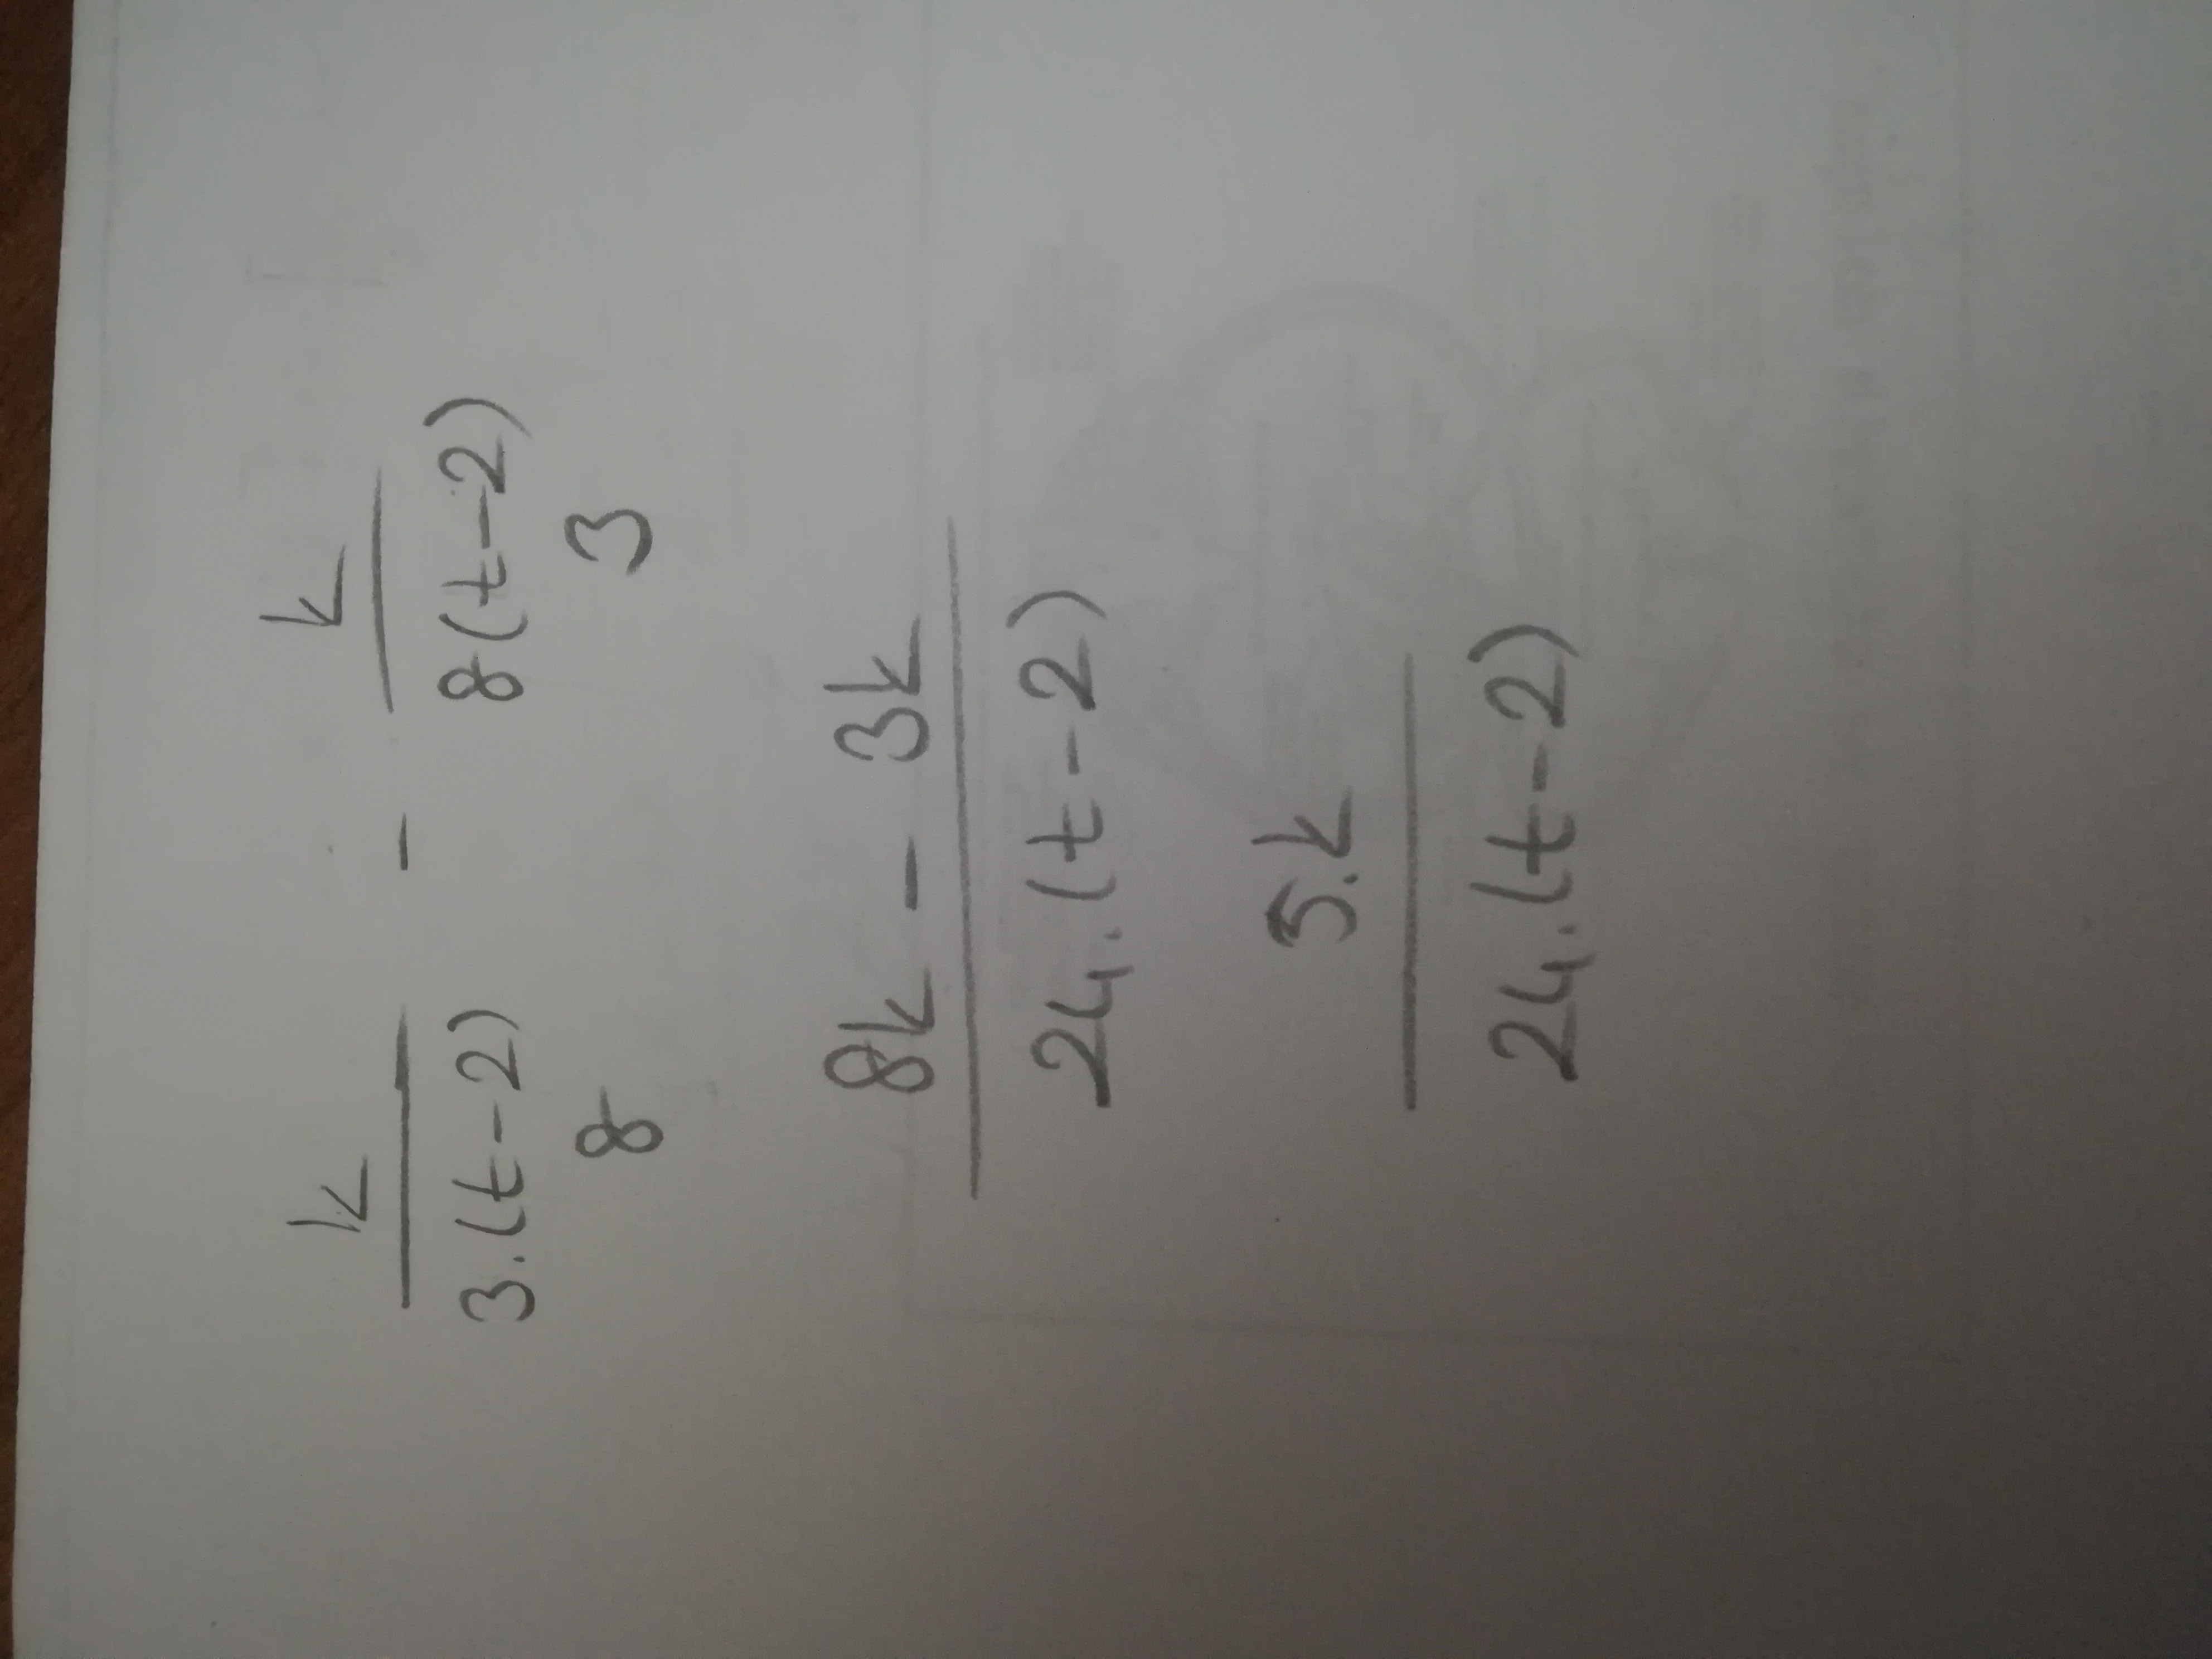 k k
3.(t-2) - 8(t-2)
8 3
8k - 3k
24.(t-2)
5.k
24.(t-2)